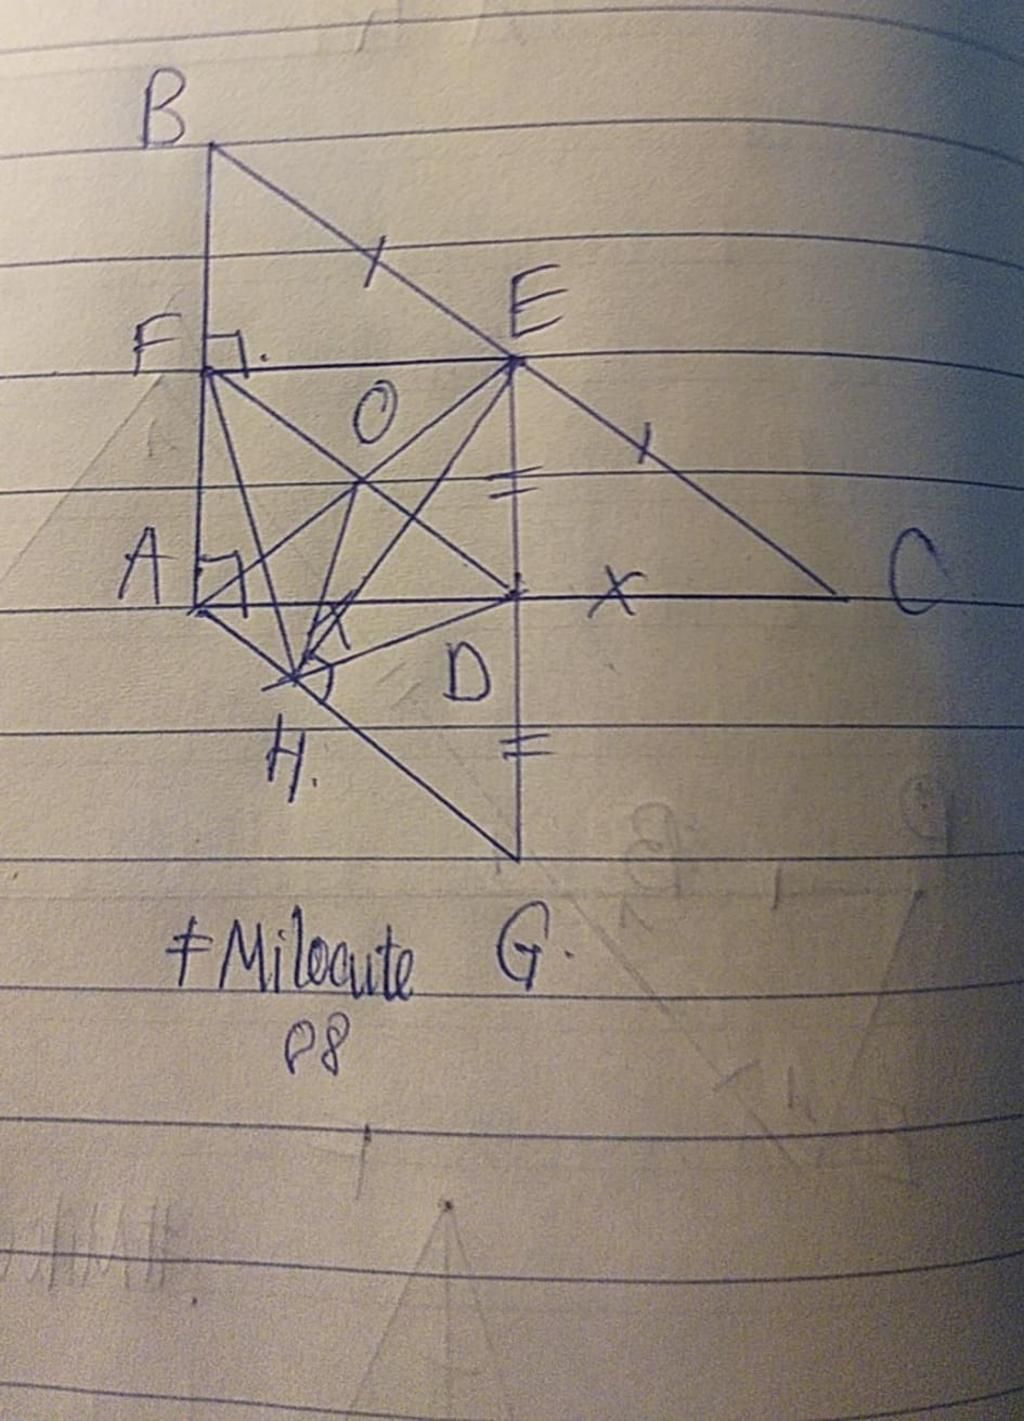 B
E
F
O
A
C
D
H.
G.
#Milocute
08